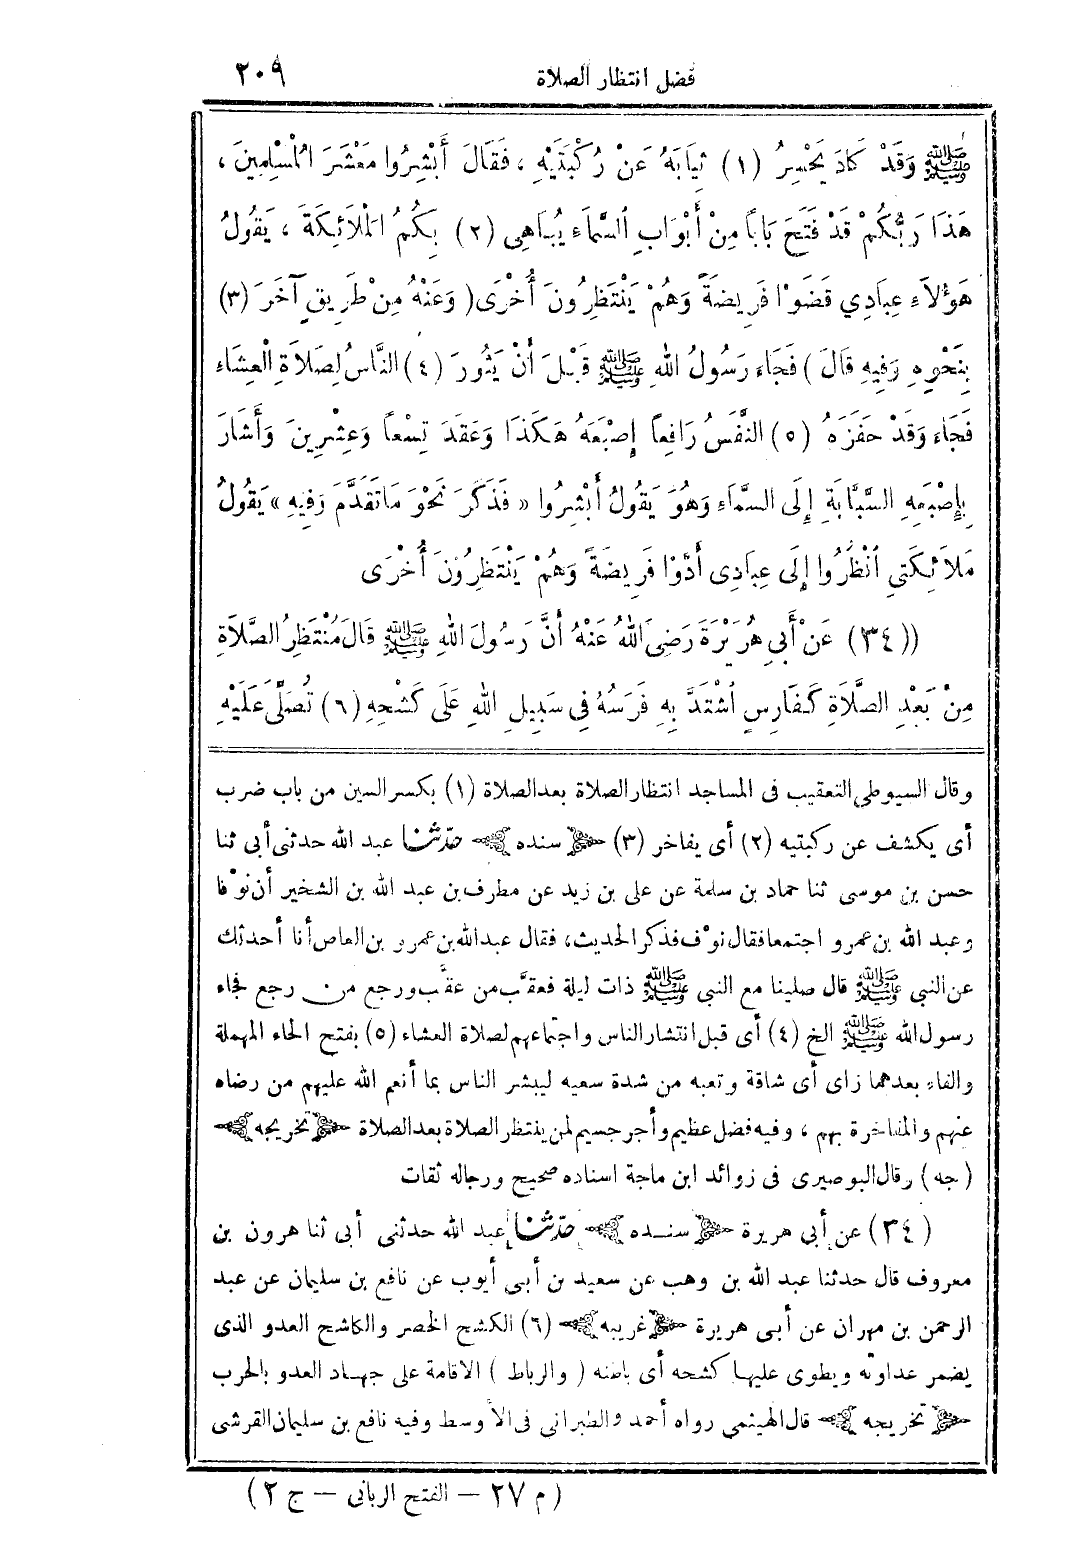 فضل انتظار الصلاة ٢٠٩
ﷺ وَقَدْ كَادَ يَحْسِرُ (١) ثِيَابَهُ عَنْ رُكْبَتَيْهِ ، فَقَالَ أَبْشِرُوا مَعْشَرَ الْمُسْلِمِينَ ،
هَذَا رَبُّكُمْ قَدْ فَتَحَ بَابًا مِنْ أَبْوَابِ السَّمَاءِ يُبَاهِى (٢) بِكُمُ الْمَلَائِكَةَ ، يَقُولُ
هَؤُلَاءِ عِبَادِي قَضَوْا فَرِيضَةً وَهُمْ يَنْتَظِرُونَ أُخْرَى ( وَعَنْهُ مِنْ طَرِيقٍ آخَرَ (٣)
بِنَحْوِهِ وَفِيهِ قَالَ ) فَجَاءَ رَسُولُ اللهِ ﷺ قَبْلَ أَنْ يَثُورَ (٤) النَّاسُ لِصَلَاةِ الْعِشَاءِ
فَجَاءَ وَقَدْ حَفَزَهُ (٥) النَّفَسُ رَافِعًا إِصْبَعَهُ هَكَذَا وَعَقَدَ تِسْعًا وَعِشْرِينَ وَأَشَارَ
بِإِصْبَعِهِ السَّبَّابَةِ إِلَى السَّمَاءِ وَهُوَ يَقُولُ أَبْشِرُوا « فَذَكَرَ نَحْوَ مَا تَقَدَّمَ وَفِيهِ » يَقُولُ
مَلَائِكَتِي انْظُرُوا إِلَى عِبَادِى أَدَّوْا فَرِيضَةً وَهُمْ يَنْتَظِرُونَ أُخْرَى
((٣٤) عَنْ أَبِي هُرَيْرَةَ رَضِيَ اللهُ عَنْهُ أَنَّ رَسُولَ اللهِ ﷺ قَالَ مُنْتَظِرُ الصَّلَاةِ
مِنْ بَعْدِ الصَّلَاةِ كَفَارِسٍ اشْتَدَّ بِهِ فَرَسُهُ فِي سَبِيلِ اللهِ عَلَى كَشْحِهِ (٦) تُصَلِّى عَلَيْهِ
وقال السيوطى التعقيب فى المساجد انتظار الصلاة بعد الصلاة (١) بكسر السين من باب ضرب
أى يكشف عن ركبتيه (٢) أى يفاخر (٣) ﴿ سنده ﴾ حدّثنا عبد الله حدثنى أبى ثنا
حسن بن موسى ثنا حماد بن سلمة عن على بن زيد عن مطرف بن عبد الله بن الشخير أن نوفا
وعبد الله بن عمرو اجتمعا فقال نوف فذكر الحديث، فقال عبدالله بن عمرو بن العاص أنا أحدثك
عن النبي ﷺ قال صلينا مع النبي ﷺ ذات ليلة فعقَّب من عقَّب ورجع من رجع فجاء
رسول الله ﷺ الخ (٤) أى قبل انتشار الناس واجتماعهم لصلاة العشاء (٥) بفتح الحاء المهملة
والفاء بعدهما زاى أى شاقة وتعبه من شدة سعيه ليبشر الناس بما أنعم الله عليهم من رضاه
عنهم والمفاخرة بهم ، وفيه فضل عظيم وأجر جسيم لمن ينتظر الصلاة بعد الصلاة ﴿ تخريجه ﴾
(جه) وقال البوصيرى فى زوائد ابن ماجة اسناده صحيح ورجاله ثقات
(٣٤) عن أبي هريرة ﴿ سنده ﴾ حدّثنا عبد الله حدثنى أبى ثنا هرون بن
معروف قال حدثنا عبد الله بن وهب عن سعيد بن أبى أيوب عن نافع بن سليمان عن عبد
الرحمن بن مهران عن أبى هريرة ﴿ غريبه ﴾ (٦) الكشح الخصر والكاشح العدو الذى
يضمر عداوته ويطوى عليها كشحه أى باطنه ( والرباط ) الاقامة على جهاد العدو بالحرب
﴿ تخريجه ﴾ قال الهيثمي رواه أحمد والطبرانى فى الأوسط وفيه نافع بن سليمان القرشى
( م ٢٧ – الفتح الربانى – ج ٢ )